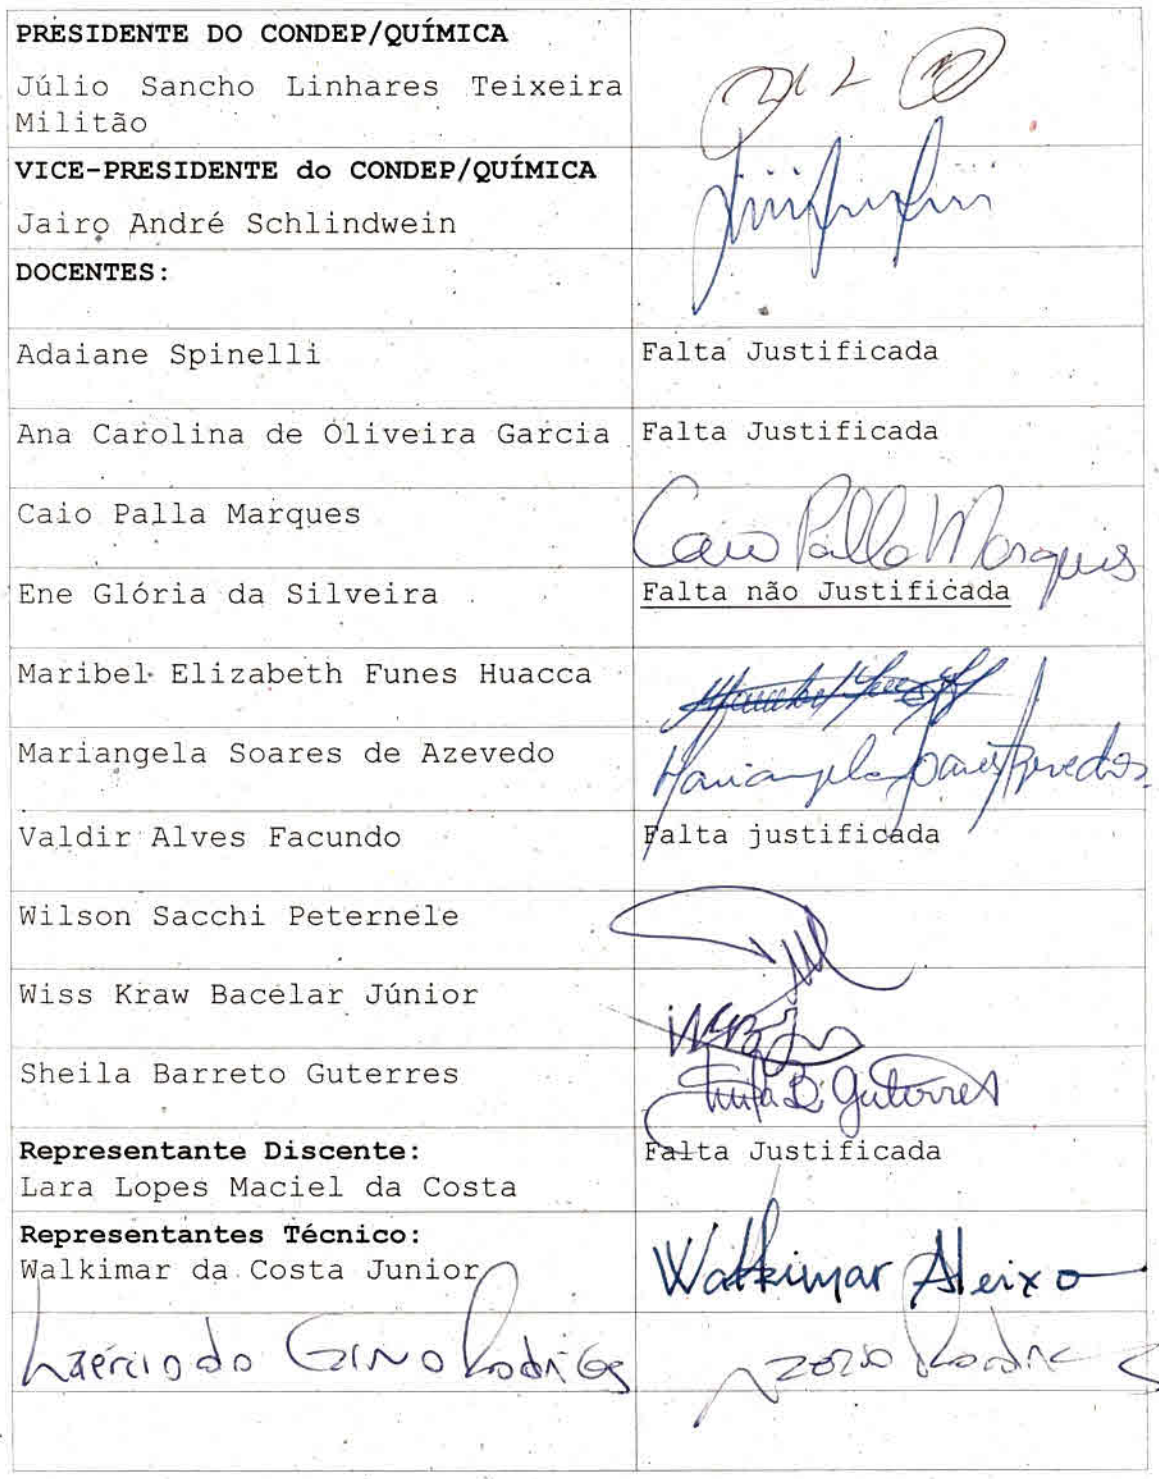 PRESIDENTE DO CONDEP/QUÍMICA
Júlio Sancho Linhares Teixeira
Militão
VICE-PRESIDENTE do CONDEP/QUÍMICA
Jairo André Schlindwein
DOCENTES:
Adaiane Spinelli
Falta Justificada
Ana Carolina de Oliveira Garcia
Falta Justificada
Caio Palla Marques
Caio Palla Marques
Ene Glória da Silveira
Falta não Justificada
Maribel Elizabeth Funes Huacca
Mariangela Soares de Azevedo
Mariangela Soares Azevedo
Valdir Alves Facundo
Falta justificada
Wilson Sacchi Peternele
Wiss Kraw Bacelar Júnior
Sheila Barreto Guterres
Sheila B. Guterres
Representante Discente:
Lara Lopes Maciel da Costa
Falta Justificada
Representantes Técnico:
Walkimar da Costa Junior
Walkimar Aleixo